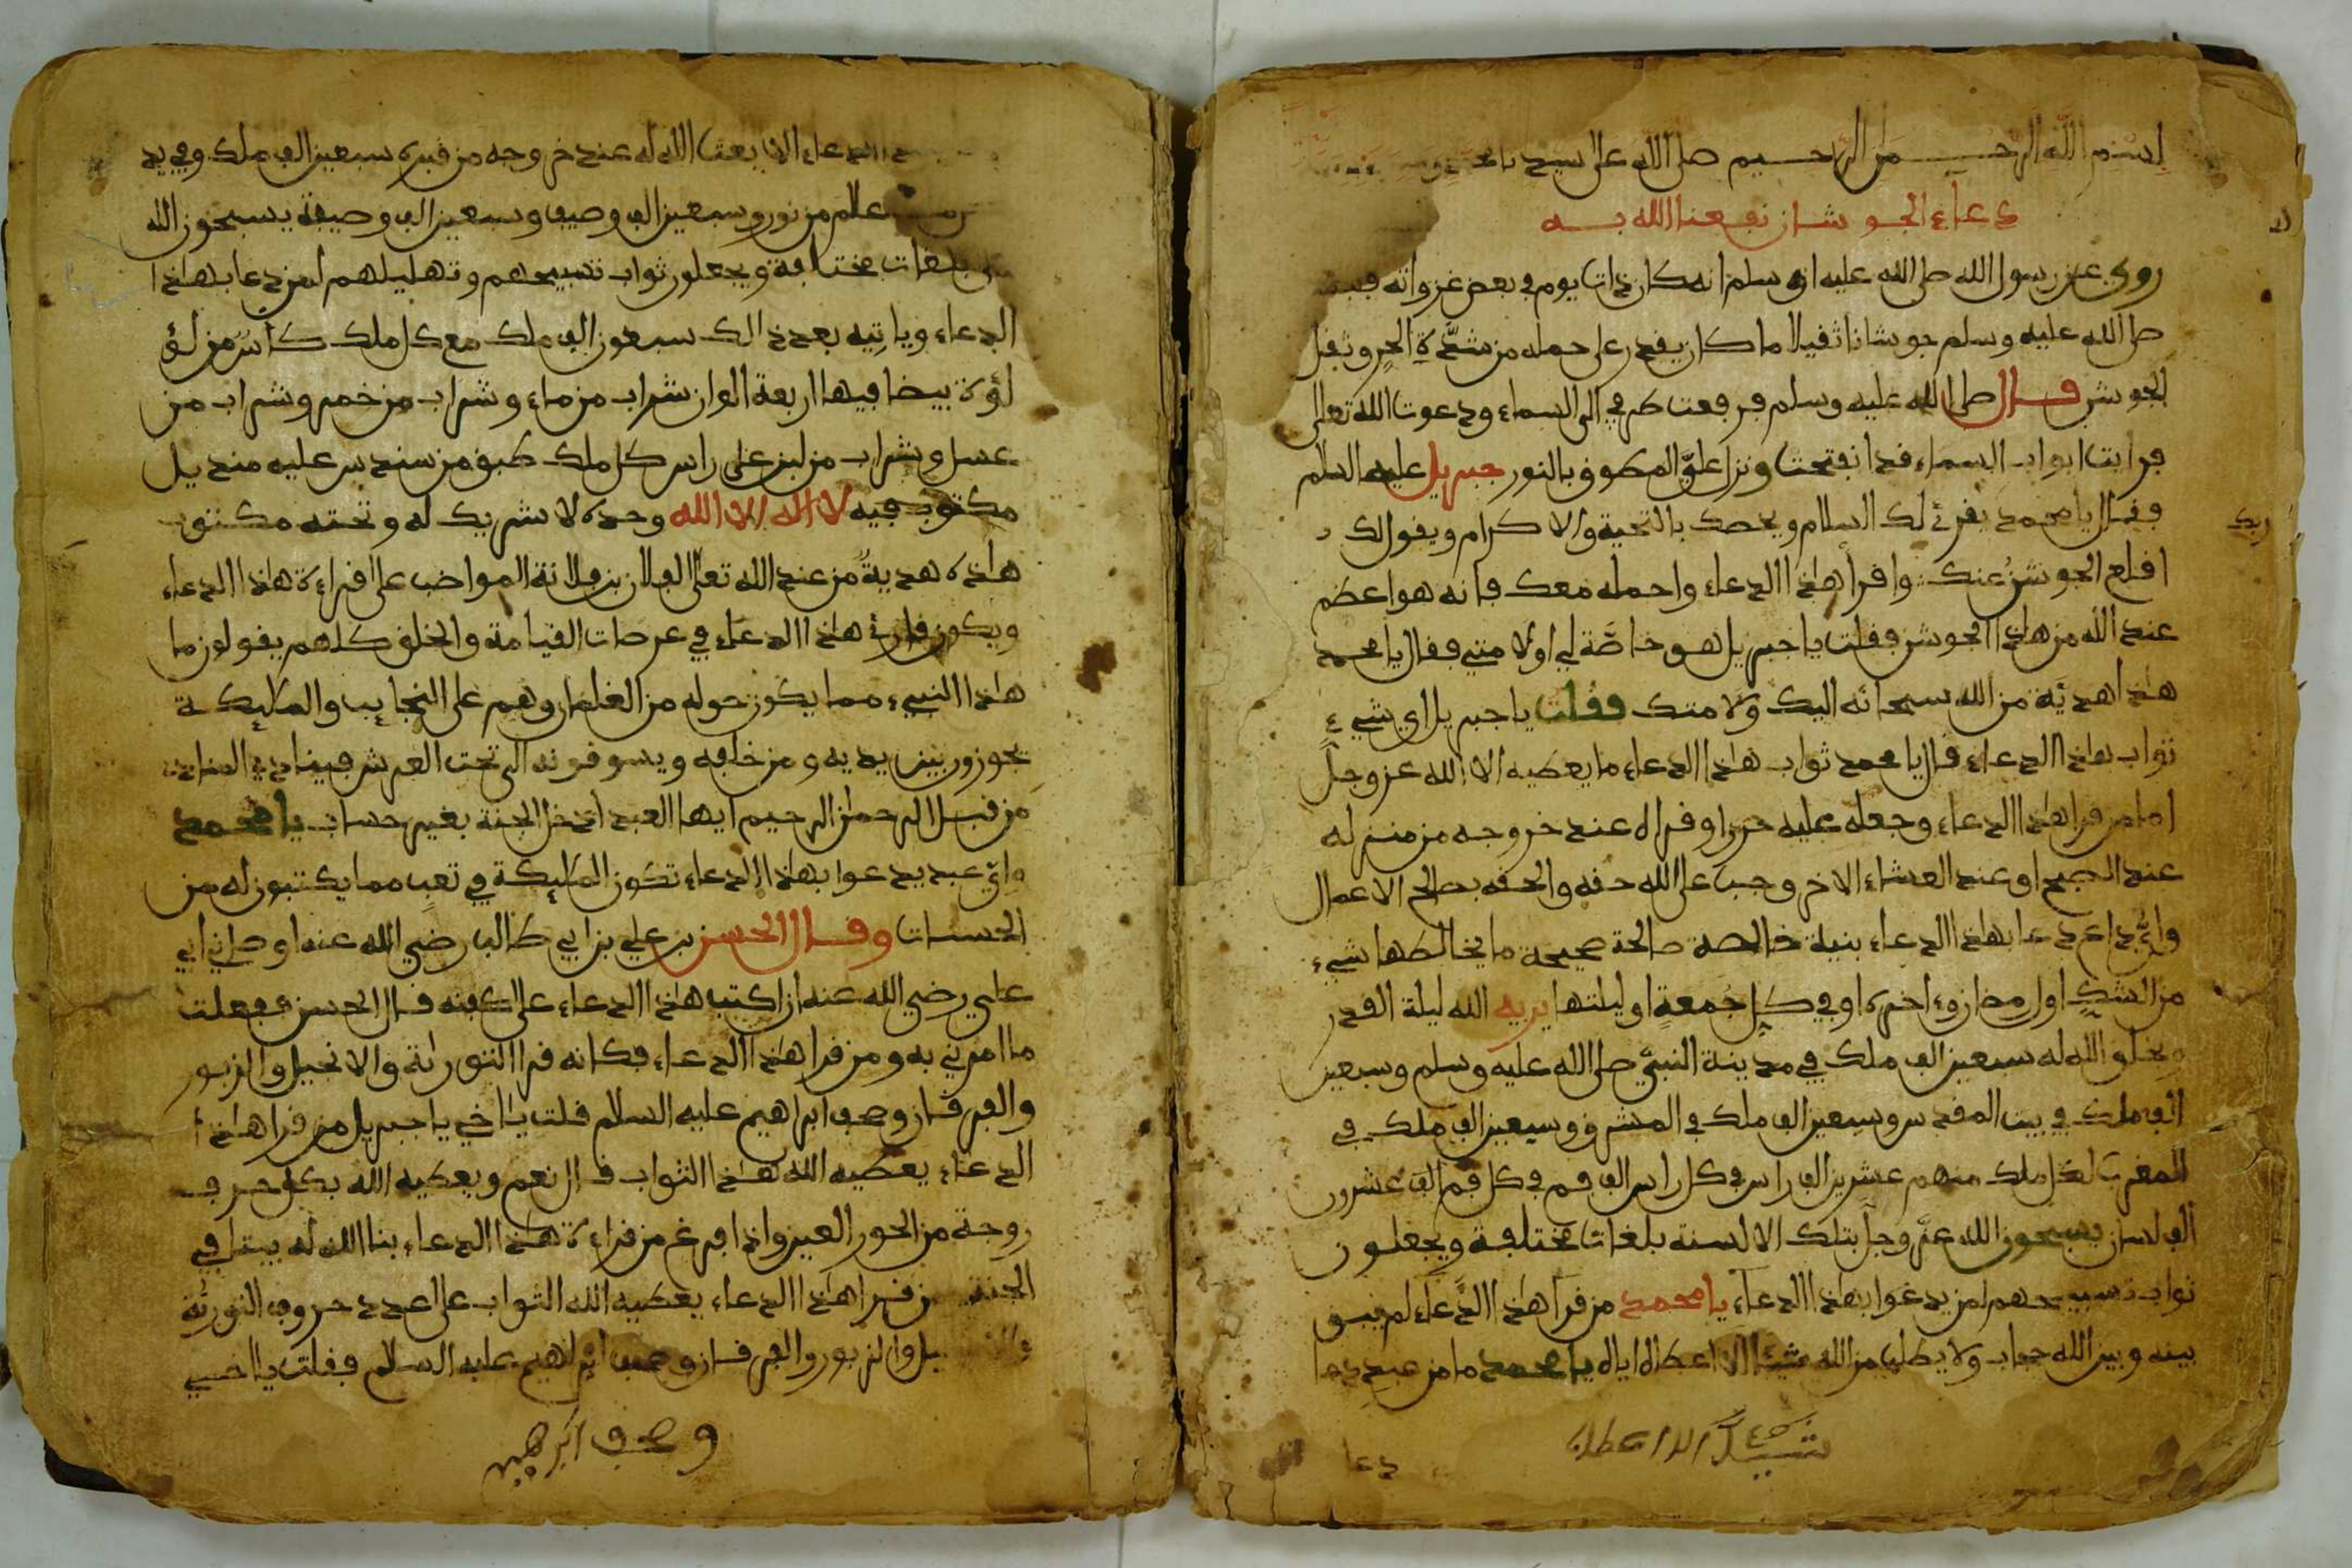 بسم الله الرحمن الرحيم صلى الله على سيدنا محمد
دعاء الجوشان نفعنا الله به
روي عن رسول الله صلى الله عليه وسلم انه كان ذات يوم في بعض غزواته
صلى الله عليه وسلم جوشانا ثقيلا ما كان يقدر على حمله من شدة الحر وثقل
الجوشن قال صلى الله عليه وسلم فرفعت طرفي الى السماء ودعوت الله تعالى
فرايت ابواب السماء قد انفتحت ونزل علي المطوق بالنور جبريل عليه السلم
فقال يا محمد يقرئ لك السلام ويخصك بالتحية والاكرام ويقول لك
ربك
اقلع الجوشن عنك واقرأ هذا الدعاء واحمله معك فانه هو اعظم
عند الله من هذا الجوشن فقلت يا جبريل هو خاصة لي او لامتي فقال يا محمد
هذا هدية من الله سبحانه اليك ولامتك فقلت يا جبريل اي شيء
ثواب هذا الدعاء قال يا محمد ثواب هذا الدعاء ما يعطيه الا الله عز وجل
اما من قرا هذا الدعاء وجعله عليه حرزا وقراه عند خروجه من منزله
عند الصبح او عند العشاء الاخر وجب على الله حقه والحقه بصالح الاعمال
واي داع دعا بهذا الدعاء بنية خالصة صالحة صحيحة ما يخالطها شيء
من الشك اول رمضان واخره او في كل جمعة او ليلتها يريه الله ليلة القدر
ويخلق الله له سبعين الف ملك في مدينة النبي صلى الله عليه وسلم وسبعين
الف ملك في بيت المقدس وسبعين الف ملك في المشرق وسبعين الف ملك في
المغرب لكل ملك منهم عشرين الف راس في كل راس الف فم في كل فم الف عشرون
الف لسان يسبحون الله عز وجل بتلك الالسنة بلغات مختلفة ويجعلون
ثواب تسبيحهم لمن يدعوا بهذا الدعاء يا محمد من قرا هذا الدعاء لم يبق
بينه وبين الله حجاب ولا يطلب من الله شيئا الا اعطاه اياه يا محمد ما من عبد دعا
شيئا الا اعطاه
دعا
الدعاء الا يعث الله له عند خروجه من قبره سبعين الف ملك وفي يد
علم من نور وسبعين الف وصيف وسبعين الف وصيفة يسبحون الله
بلغات مختلفة ويجعلون ثواب تسبيحهم وتهليلهم لمن دعا بهذا
الدعاء وياتيه بعد ذالك سبعون الف ملك مع كل ملك كاس من لؤ
لؤة بيضا فيها اربعة الوان شراب من ماء وشراب من خمر وشراب من
عسل وشراب من لبن على راس كل ملك طبق من سندس عليه منديل
مكتوب فيه لا اله الا الله وحده لا شريك له وتحته مكتوب
هذه هدية من عند الله تعالى لفلان بن فلانة المواضب على قراءة هذا الدعاء
ويكون قارئ هذا الدعاء في عرصات القيامة والخلق كلهم يقولون ما
هذا النبيء مما يكون حوله من الغلمان وهم على النجايب والملايكة
يجوزون بين يديه ومن خلفه ويسوقونه الى تحت العرش فينادي المنادي
من قبل الرحمن الرحيم ايها العبد ادخل الجنة بغير حساب يا محمد
واي عبد يدعوا بهذا الدعاء تكون الملايكة في تعب مما يكتبون له من
الحسنات وقال الحسن بن علي بن ابي طالب رضي الله عنه اوصاني ابي
علي رضي الله عنه ان اكتب هذا الدعاء على كفنه قال الحسن ففعلت
ما امرني به ومن قرا هذا الدعاء فكانه قرا التوراية والانجيل والزبور
والفرقان وصحف ابراهيم عليه السلام قلت يا اخي يا جبريل من قرا هذا
الدعاء يعطيه الله هذا الثواب قال نعم ويعطيه الله بكل حرف
زوجة من الحور العين واذا فرغ من قراءة هذا الدعاء بنا الله له بيتا في
الجنة من قرا هذا الدعاء يعطيه الله الثواب على عدد حروف التورية
والزبور والفرقان وصحف ابراهيم عليه السلام فقلت يا اخي
وصحف ابرهيم